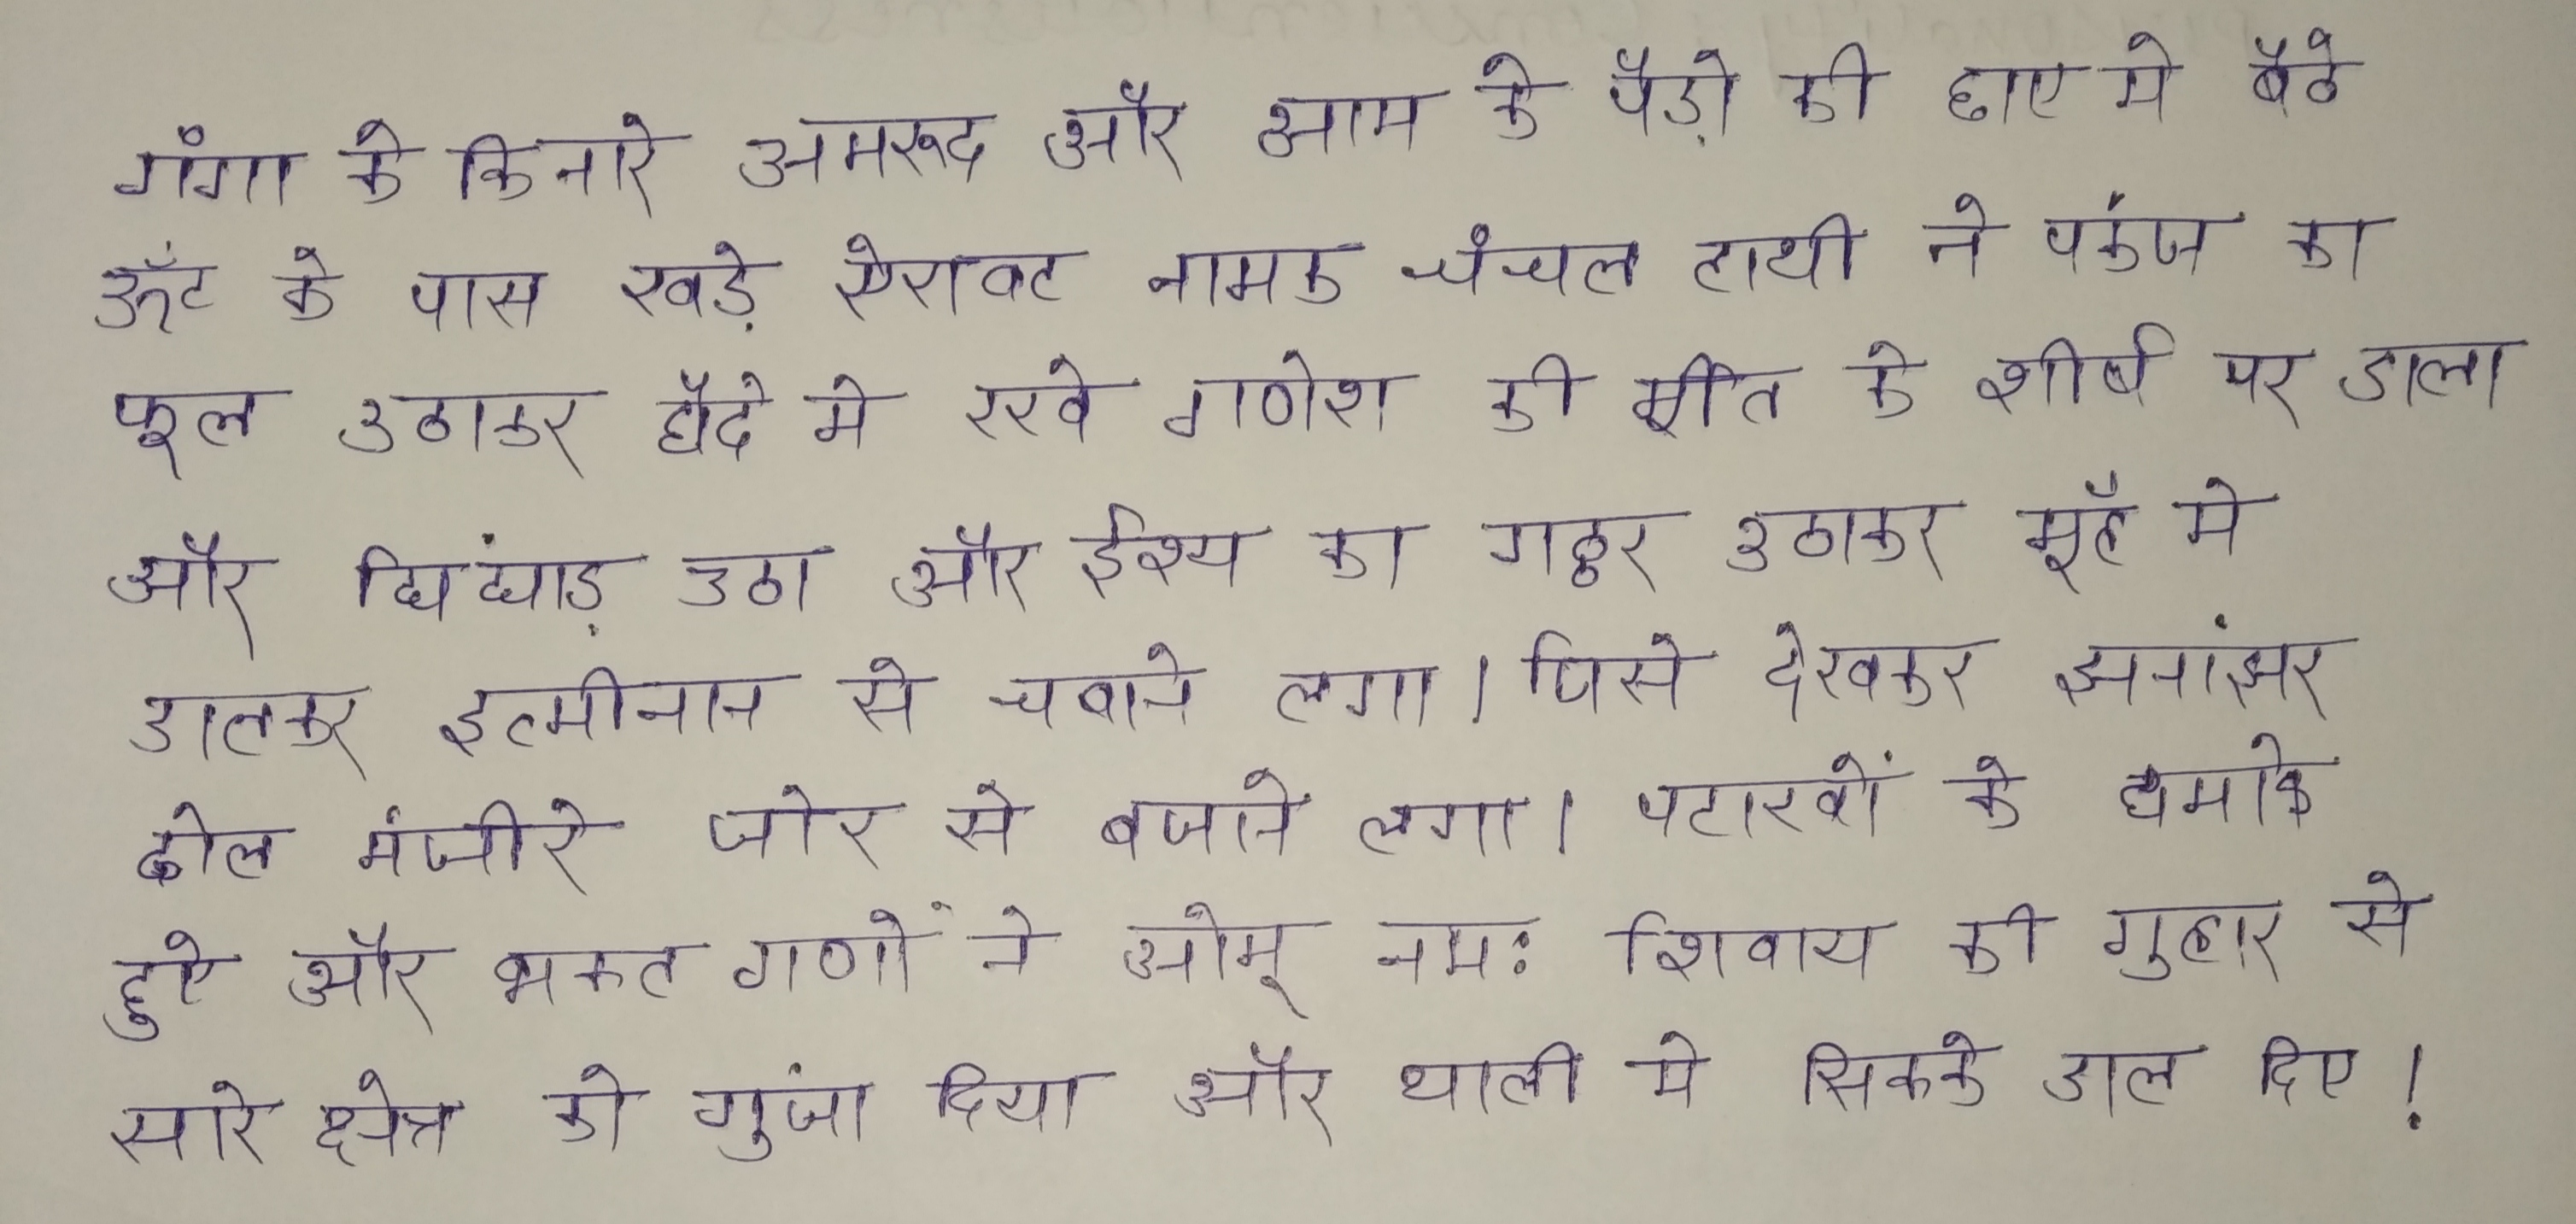 गंगा के किनारे अमरूद और आम के पैड़ो की छाए मे बैठे
ऊँट के पास खड़े ऐरावट नामक चंचल हाथी ने पकंज का
फूल उठाकर हौदे मे रखे गणेश की के शीर्ष पर डाला
और घिंघाड़ उठा और ईश्य का गठ्ठर उठाकर मूहँ मे
डालकर इत्मीनान से चबाने लगा। जिसे देखकर झनांझर
ढोल मंजीरे जोर से बजाने लगा। पटाखों के धमाके
हुऐ और भकत गणों ने ओम् नमः शिवाय की गुहार से
सारे क्षेत्र को गुंजा दिया और थाली मे सिकके डाल दिए !